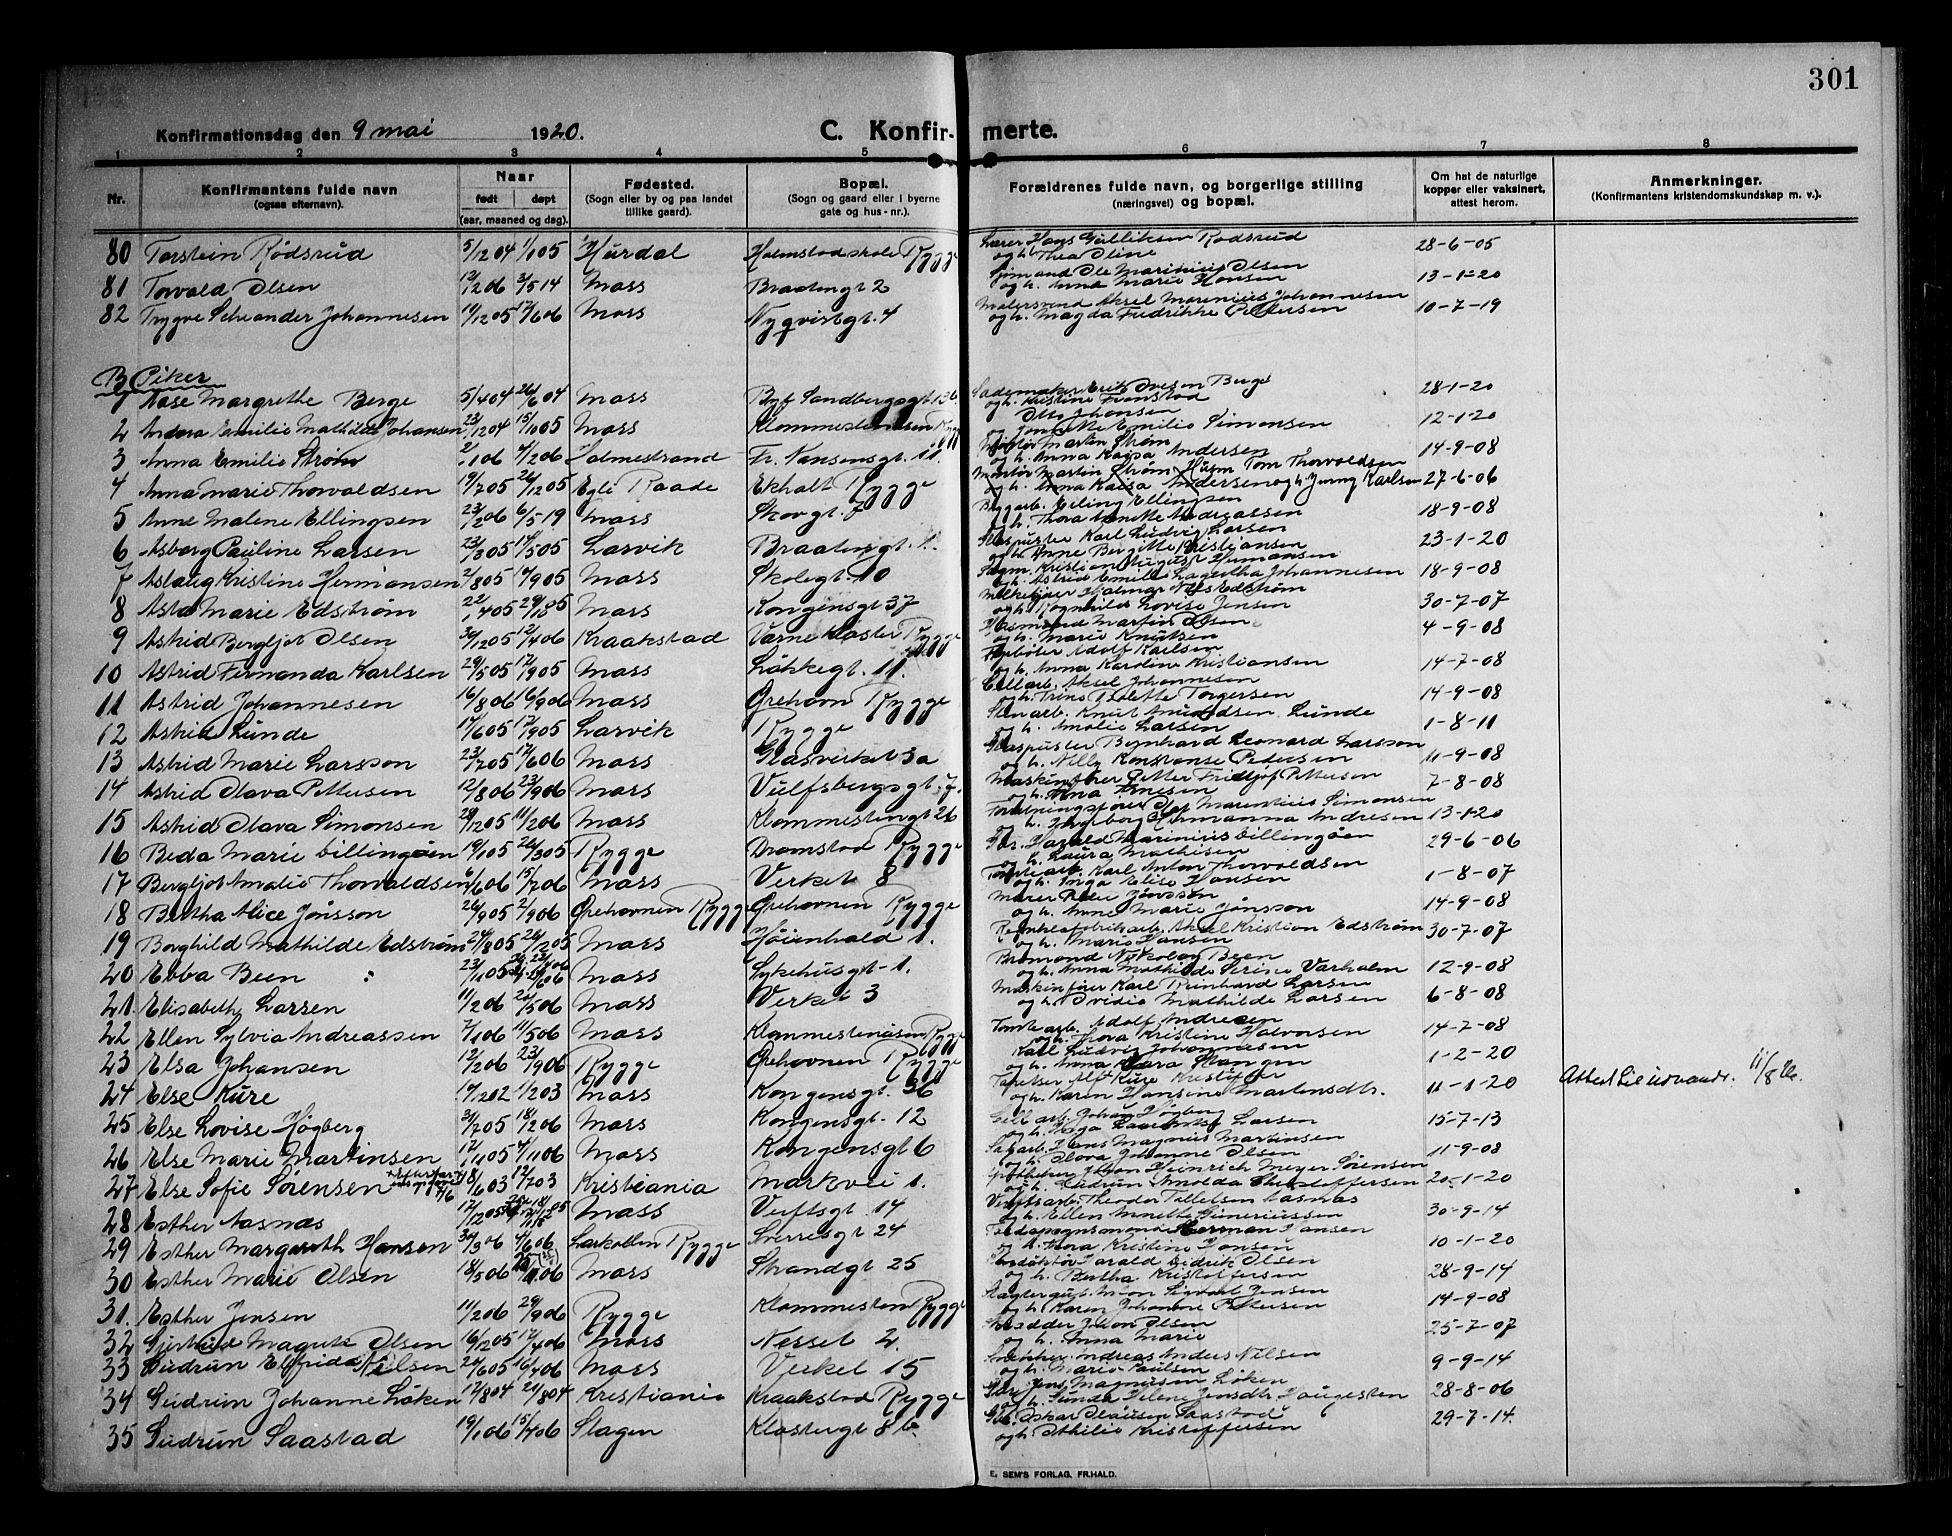 301
Konfirmationsdag den 9 mai 1920. C. Konfir- merte.
1 2 3 4 5 6 7 8
Nr. Konfirmantens fulde navn (ogsaa efternavn). Naar født døpt (aar, maaned og dag). Fødested. (Sogn eller by og paa landet tillike gaard). Bopæl. (Sogn og gaard eller i byerne gate og hus-nr.). Forældrenes fulde navn, og borgerlige stilling (næringsvei) og bopæl. Om hat de naturlige kopper eller vaksinert, attest herom. Anmerkninger. (Konfirmantens kristendomskundskap m. v.).
80 Torstein Rödsrud 5/1204 1/105 Hurdal Halmstad skole Rygge Lærer Hans Gulliksen Rødsrud og h. Thea Oline 28-6-05
81 Torvald Olsen 12/206 3/514 Moss Braatengt 2 Sjömand Ole Marinius Olsen og h. Anna Marie Hansen 13-1-20
82 Trygve Johannesen 11/1205 17/606 Moss Nyquistgt. 4 Malersvend Aksel Marenius Johannesen og h. Magda Fredrikke Pettersen 10-7-19
B Piker
1 Aase Margrethe Berge 5/404 26/604 Moss Sandbergsgt 13b. Erik Iveson Berge og h. Kristine 28-1-20
2 Andora Emilie Mathilde Johansen 23/1204 15/1005 Moss Klommestensen Rygge Otto Johansen og Emilie Simonsen 12-1-20
3 Anna Emilie Strøm 2/106 4/206 Holmestrand Fr. Nansensgt. 11 Martin Strøm og h. Anna Kaisa Andersen 14-9-08
4 Anna Marie Thorvaldsen 19/705 26/1205 Egle Raade Ekholt Rygge Martin Strøm Husm Tom Thorvaldsen og h. Anna Kaisa Andersen og h. Jenny Karlsen 27-6-06
5 Anne Malene Ellingsen 23/206 6/519 Moss Skovgt. 7 Byggarb. Eiling Ellingsen og h. Thora Annette Andreassen 18-9-08
6 Asborg Pauline Larsen 23/305 14/505 Larvik Braatengt. Glaspuster Karl Ludvig Larsen og h. Anne Bergitte Kristiansen 23-1-20
7 Aslaug Kristine Hermansen 2/805 17/905 Moss Skolegt. 10 Kristian August Hermansen og h. Astrid Emilie Lagertha Johannesen 18-9-08
8 Asta Marie Edstrøm 22/405 29/1005 Moss Kongensgt 37 Hjalmar Nils Edstrøm og h. Ragnhild Lovise Jensen 30-7-07
9 Astrid Bergljot Olsen 30/1205 12/406 Kraakstad Varne kloster Rygge Martin Olsen og h. Marie Knutsen 4-9-08
10 Astrid Fernanda Karlsen 29/505 17/905 Moss Løkkegt. 11. Fyrbøter Adolf Karlsen og h. Anna Karoline Kristiansen 14-7-08
11 Astrid Johannesen 16/806 16/906 Moss Ørehavn Rygge Cellarb. Aksel Johannesen og h. Trine Bolette Torgersen 14-9-08
12 Astrid Lunde 17/605 17/905 Larvik Rygge Stenarb. Knut Amundsen Lunde og h. Amalie Larsen 1-8-11
13 Astrid Marie Larsson 23/1205 17/606 Moss Glasverket 3a Glaspuster Bernhard Leonard Larsson og h. Nelly Konstanse Petersen 11-9-08
14 Astrid Olava Pettersen 12/806 23/906 Moss Vulfsbergsgt 7. Maskinfører Petter Fridtjof Pettersen og h. Anna Arnesen 7-8-08
15 Astrid Olava Simonsen 28/1205 11/206 Moss Klommestengt 26 Forretningsfører Olaf Marentius Simonsen og h. Ingeborg Hermanna Andresen 13-1-20
16 Beda Marie Billingøen 19/105 26/305 Rygge Dramstad Rygge Harald Marinius Billingøen og h. Laura Mathisen 29-6-06
17 Bergljot Amalie Thorvaldsen 6/606 15/706 Moss Verket 8 Tomtearb. Karl Anton Thorvaldsen og h. Inga Elise Hansen 1-8-07
18 Bertha Alice Jönsson 26/905 2/906 Ørehavnen Rygge Ørehavnen Rygge Murer Peder Jönsson og h. Anne Marie Jönsson 14-9-08
19 Borghild Mathilde Edstrøm 24/805 26/1205 Moss Høienhald 1. Aksel Kristian Edstrøm og h. Marie Hansen 30-7-07
20 Ebba Been 23/1105 /606 Moss Sykehusgt-1. Bromand Nikolay Been og h. Anna Mathilde Serine Varholm 12-9-08
21. Elisabeth Larsen 11/206 20/506 Moss Verket 3 Maskinfører Karl Reinhard Larsen og h. Ovidia Mathilde Larsen 6-8-08
22 Ellen Sylvia Andreassen 7/106 11/506 Moss Klommestenåsen Rygge Tomtearb. Adolf Andresen og h. Thora Kristine Halvorsen 14-7-08
23 Elsa Johansen 12/206 23/906 Rygge Ørehavnen Rygge Karl Ludvig Johannesen og h. Anna Clara Stangen 1-2-20
24 Else Kure 14/1202 1/1203 Moss Kongensgt. 36 Tapetser Alf Kure Kristoffer og h. Karen Hansine Martensdtr. 11-1-20 Attest til utvandr. 11/8
25 Else Lovise Högberg 31/1205 18/1206 Moss Kongensgt- 12 Cellarb. Johan Högberg og h. Helga Larsen 15-7-13
26 Else Marie Martinsen 12/1105 4/1106 Moss Kongensgt 6 Sagarb. Hans Magnus Martinsen og h. Olava Johanne Olsen 11-9-08
27 Else Sofie Sørensen 18/603 12/703 Kristiania Markvei 1. Apotheker Johan Heinrich Meyer Sørensen og h. Gudrun Arnolda Christoffersen 20-1-20
28 Esther Aasnæs 12/1205 Moss Verftsgt. 14 Verftsarb. Theodor Tillefsen Aasnæs og h. Ellen Annette Gunerinssen 30-9-14
29 Esther Margareth Hansen 30/306 4/606 Larkollen Rygge Sverresgt 24 Herman Hansen og h. Thora Kristine Hansen 10-1-20
30 Esther Marie Olsen 18/506 Moss Strandgt 25 Harald Fredrik Olsen og h. Bertha Kristoffersen 28-9-14
31. Esther Jensen 11/206 29/906 Rygge Klommesten Rygge Sigvart Jensen og h. Karen Johanne Pettersen 14-9-08
32 Gjertrud Magnte Olsen 16/1205 17/406 Moss Nesset 2. Johan Olsen og h. Anna Marie 25-7-07
33 Gudrun Elfrida Nilsen 20/605 16/406 Moss Verket 15 Snekker Andreas Anders Nilsen og h. Marie Paulsen 9-9-14
34 Gudrun Johanne Løken 17/804 20/804 Kristiania Kraakstad Rygge Jens Magnusen Løken og h. Gunda Helene Jensdtr Haugesten 28-8-06
35 Gudrun Saastad 19/106 15/406 Slagen Klostergt 8 b Oskar Olaussen Saastad og h. Athilie Kristoffersen 29-7-14.
E. SEM'S FORLAG, FR.HALD.